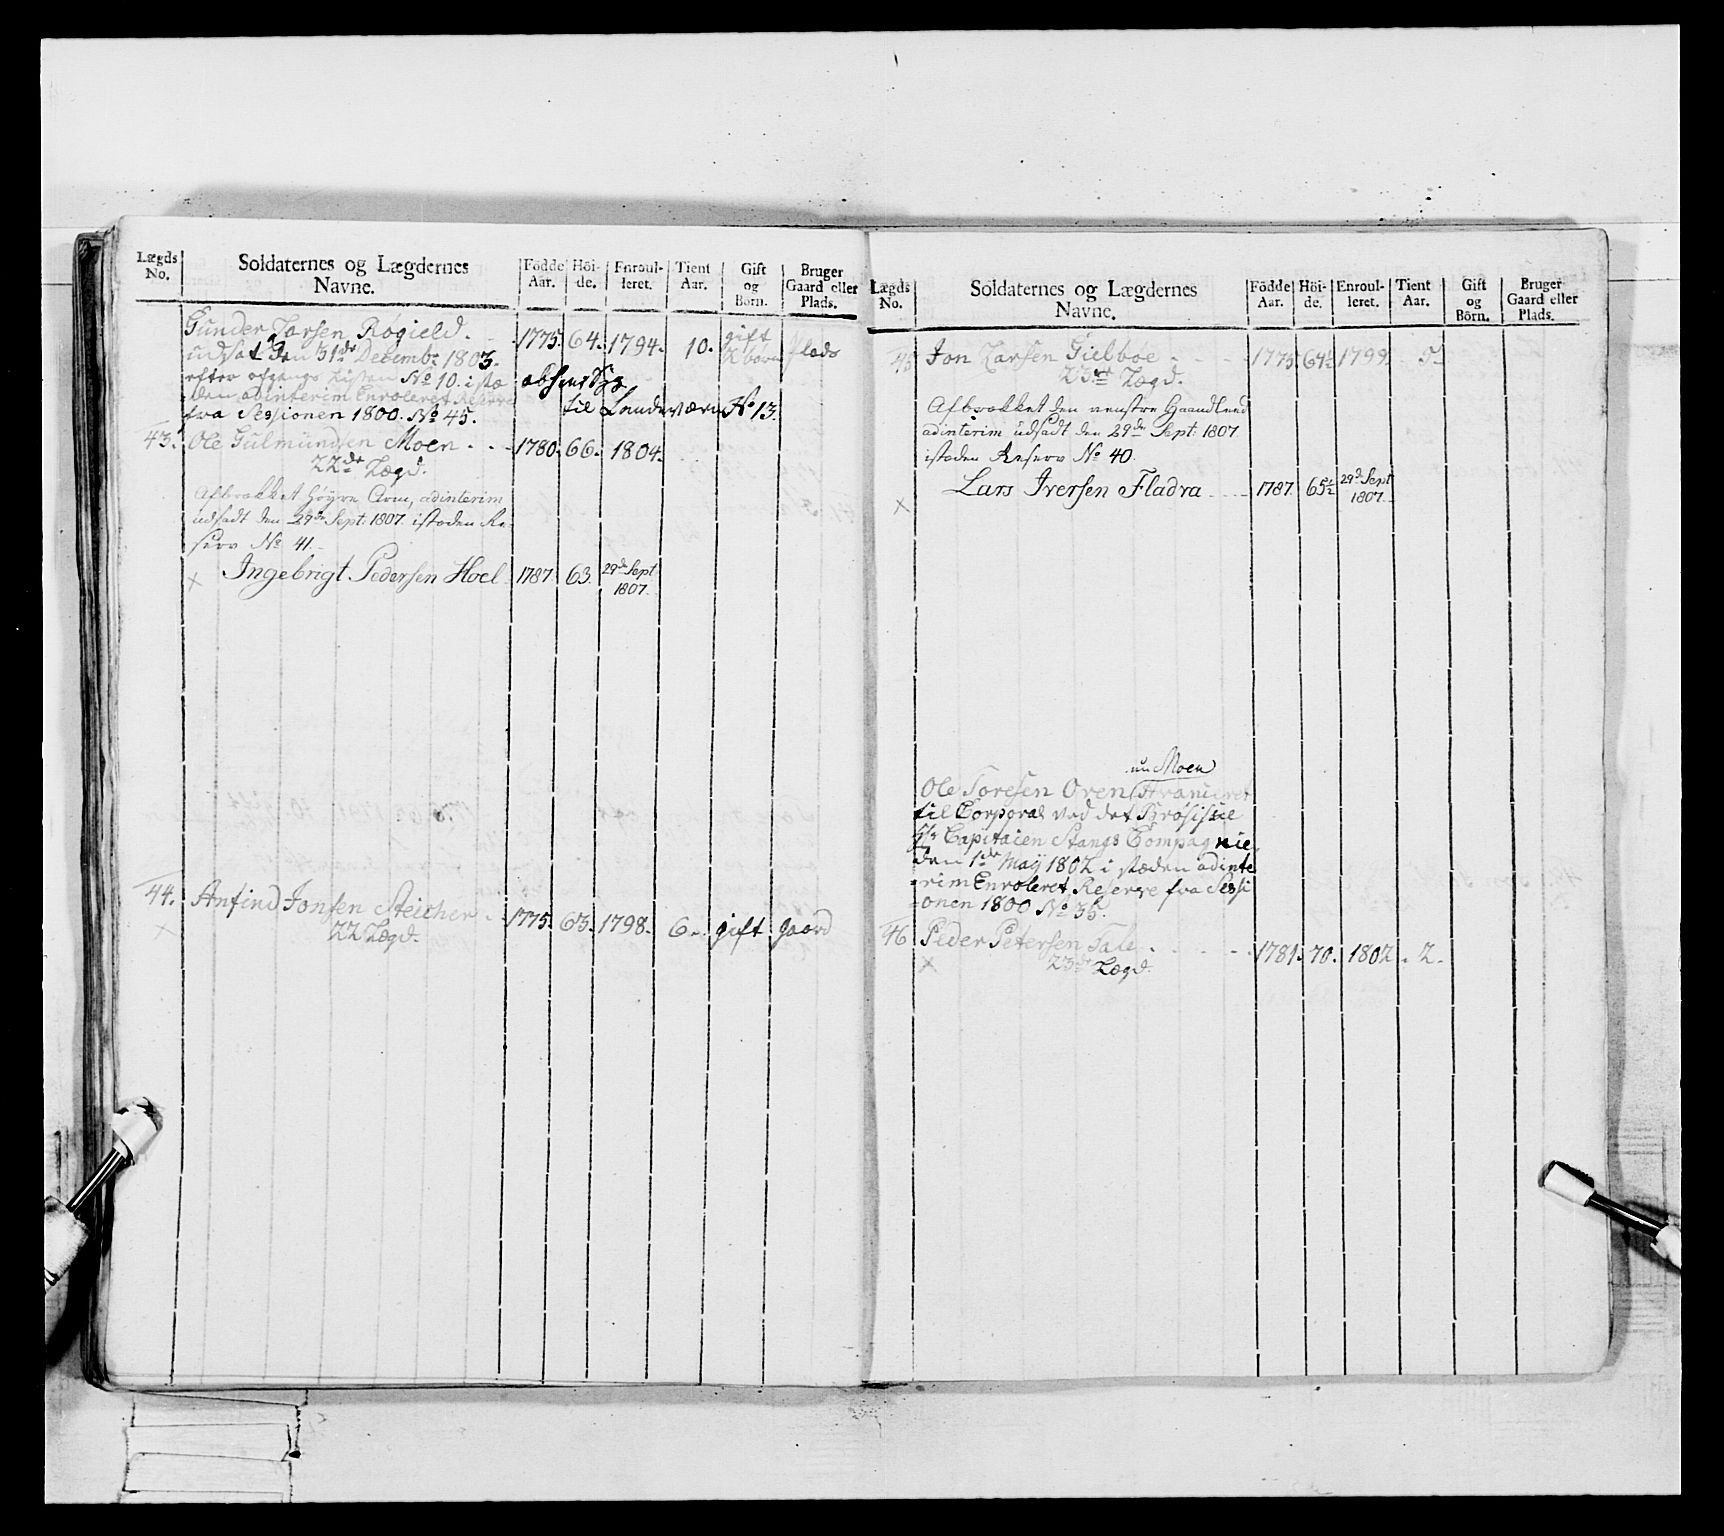 Lægds No. | Soldaternes og Lægdernes Navne. | Födde Aar. | Höi-de. | Enroul-leret. | Tient Aar. | Gift og Börn. | Bruger Gaard eller Plads.
Gunder Larsen Røgield. 1775. 64. 1794. 10. gift børn plads
udsat den 31de Decembr 1803.
efter afgangs Listen No 10. i stæ
den adinterim Enroleret Reserve
fra Sessionen 1800. No 45.
til Landeværn No 13.
43. Ole Gulmundsen Moen 1780. 66. 1804.
22de Lægd.
Afbrækket Høyre Arm, adinterim
udsadt den 29de Sept: 1807. istæden Re-
serv No 41.
× Ingebrigt Pedersen Hoel 1787. 63. 29de Sept 1807.
44. Anfind Jonsen Steicher 1775. 63. 1798. 6. gift gaard
× 22 Lægd.
Lægds No. | Soldaternes og Lægdernes Navne. | Födde Aar. | Höi-de. | Enroul-leret. | Tient Aar. | Gift og Börn. | Bruger Gaard eller Plads.
45 Jon Larsen Gielbøe 1775. 64½ 1799. 5.
23de Lægd.
Afbrækket den venstre Haandleed
adinterim udsadt den 29de Sept: 1807
istæden Reserv No 40.
× Lars Iversen Fladra 1787. 65½ 29de Sept 1807.
nu Moen
Ole Toresen Oren,
til Corporal ved det
Capitaien Stangs Compagnie,
den 1de Maij 1802 i stæden adinte
rim Enroleret Reserve fra Sessi
onen 1800 No 35.
46 Peder Petersen Tale 1781. 70. 1802. 2.
× 23de Lægd.